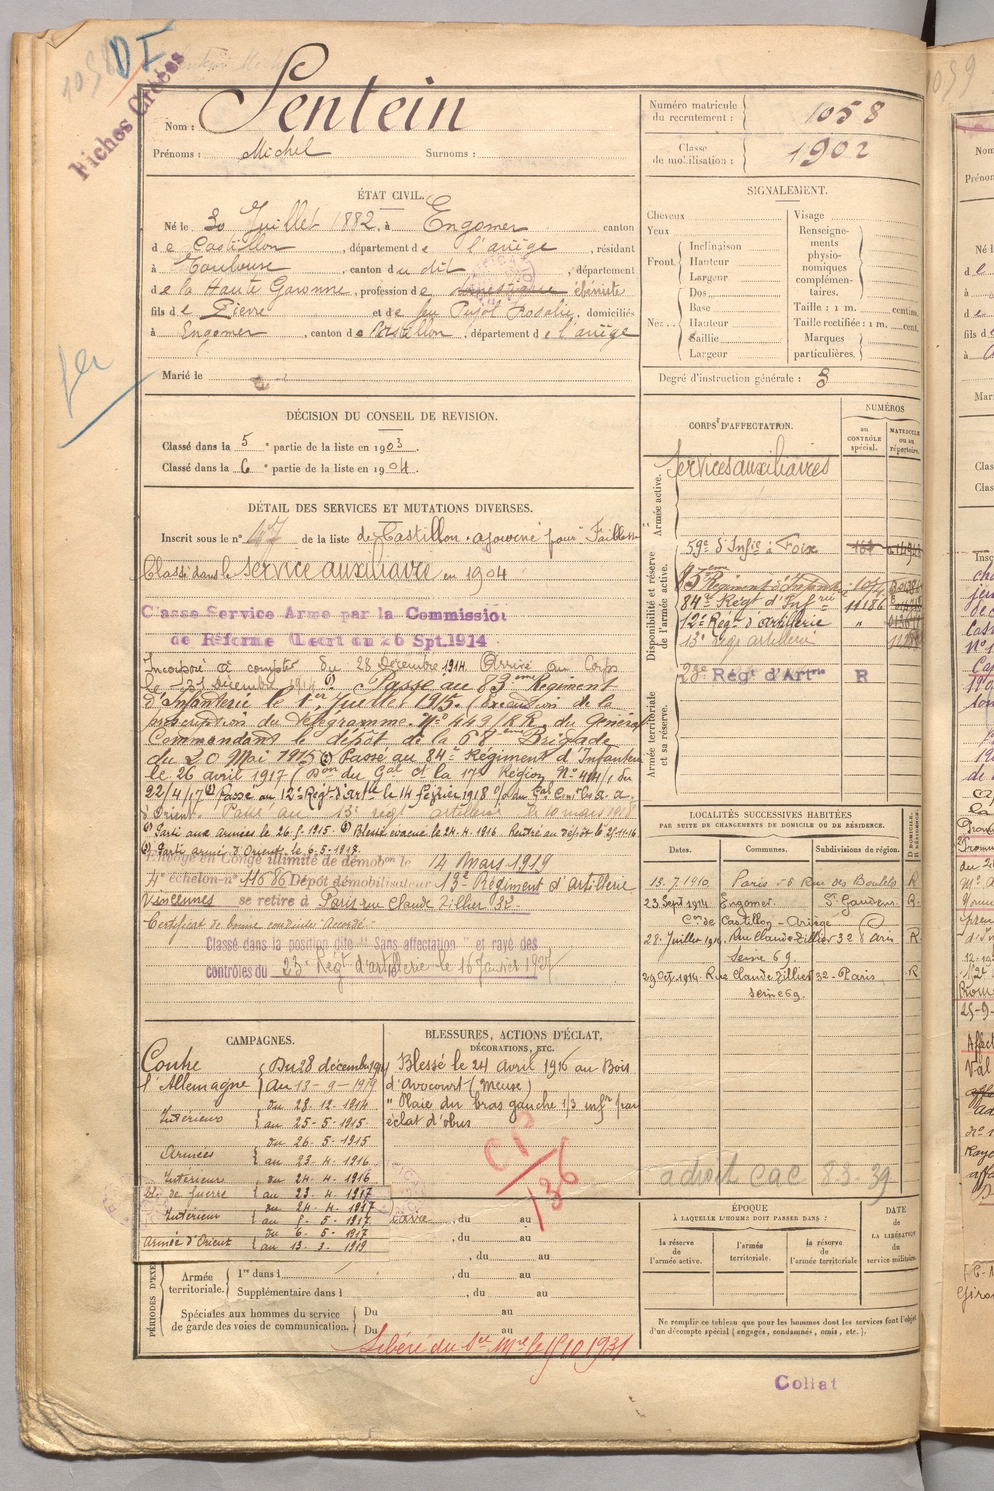 1058
DI
Fiches Créées
Nom : Sentein
Prénoms : Michel Surnoms :
Numéro matricule du recrutement : 1058
Classe de mobilisation : 1902
ÉTAT CIVIL.
Né le 30 Juillet 1882, à Engomer canton
de Castillon, département de l'ariège, résidant
à Toulouse, canton du dit, département
de la Haute Garonne, profession de domestique ébéniste
fils de Pierre et de feu Pujol Rosalie, domiciliés
à Engomer, canton de Castillon, département de l'ariège
Marié le
SIGNALEMENT.
Cheveux
Yeux
Front. Inclinaison
Hauteur
Largeur
Nez... Dos
Base
Hauteur
Saillie
Largeur
Visage
Renseignements physionomiques complémentaires.
Taille : 1 m. centim.
Taille rectifiée : 1 m. cent.
Marques particulières.
Degré d'instruction générale : 3
DÉCISION DU CONSEIL DE REVISION.
Classé dans la 5e partie de la liste en 1903.
Classé dans la 6e partie de la liste en 1904.
DÉTAIL DES SERVICES ET MUTATIONS DIVERSES.
Inscrit sous le n° 47 de la liste de Castillon. ajourné pour Faiblesse
Classé dans le service auxiliaire en 1904
Classé Service Armé par la Commission
de Réforme (Décret du 26 Spt. 1914
Incorporé à compter du 28 Décembre 1914. Arrivé au Corps
le 31 décembre 1914 (1). Passé au 83ème Régiment
d'Infanterie le 1er Juillet 1915. (Exécution de la
prescription du télégramme N° 449/RR du Général
Commandant le dépôt de la 68ème Brigade
du 20 Mai 1915 (2) Passé au 84e Régiment d'Infanterie
le 26 avril 1917 (Don du Gal Ct la 17e Région N° 414/1 du
22/4/17 (3) Passé au 12e Régt d'Artie le 14 février 1918
d'Orient. Passé au 13e régt artillerie le 10 mars 1918
(1) Parti aux armées le 26.5.1915. (2) Blessé évacué le 24.4.1916. Rentré au dépôt le
(3) Parti armée d'Orient le 6.5.1917.
Envoyé en Congé illimité de démobon le 14 Mars 1919
4e échelon n° 11686 Dépôt démobilisateur 13e Régiment d'Artillerie
Vincennes se retire à Paris rue Claude Tillier 32
Certificat de bonne conduite Accordé.
Classé dans la position dite "Sans affectation" et rayé des
contrôles du 23e Régt d'artillerie le 16 Janvier 1927
CORPS D'AFFECTATION.
NUMÉROS
au CONTRÔLE spécial.
MATRICULE ou au répertoire.
Armée active.
Services auxiliaires
Disponibilité et réserve de l'armée active.
59e d'Infie à Foix
83ème Régiment d'Infanterie
84e Régt d'Infrie 11186
12e Régt d'artillerie "
13e régt artillerie
Armée territoriale et sa réserve.
23e Régt d'Artrie R
LOCALITÉS SUCCESSIVES HABITÉES
PAR SUITE DE CHANGEMENTS DE DOMICILE OU DE RÉSIDENCE.
Dates. Communes. Subdivisions de région. D. DOMICILE. R. RÉSIDENCE.
13.7.1910. Paris 56 Rue des Boulets R
23 Sept 1914 Engomer St Gaudens R.
Con de Castillon - Ariège
28 Juillet 1916. Rue Claude Tillier 32 Paris R
Seine 6 9.
29 Oct. 1914. Rue Claude Tillier 32 - Paris R
Seine 6 9.
CAMPAGNES.
Contre l'Allemagne { Du 28 décembre 1914
au 13-9-1919
Intérieur { du 28-12-1914
au 25-5-1915.
Armées { du 26-5-1915
au 23-4-1916
Intérieur { du 24-4-1916
Blé de guerre au 23-4-1917
Intérieur { du 24-4-1917
au 5-5-1917.
Armée d'Orient { du 6-5-1917
au 13-3-1919.
BLESSURES, ACTIONS D'ÉCLAT,
DÉCORATIONS, ETC.
Blessé le 24 avril 1916 au Bois
d'Avocourt (Meuse)
"Plaie du bras gauche 1/3 infr par
éclat d'obus
CP
136
a droit CAC 83.39
, du au
, du au
, du au
PÉRIODES D'EXE
Armée territoriale. 1re dans l , du au
Supplémentaire dans l , du au
Spéciales aux hommes du service de garde des voies de communication. Du au
Du au
Libéré du Sce Mre le 15 10 1931
ÉPOQUE
À LAQUELLE L'HOMME DOIT PASSER DANS :
la réserve de l'armée active.
l'armée territoriale.
la réserve de l'armée territoriale
DATE de LA LIBÉRATION du service militaire.
Ne remplir ce tableau que pour les hommes dont les services font l'objet
d'un décompte spécial (engagés, condamnés, omis, etc.).
Collat
1059